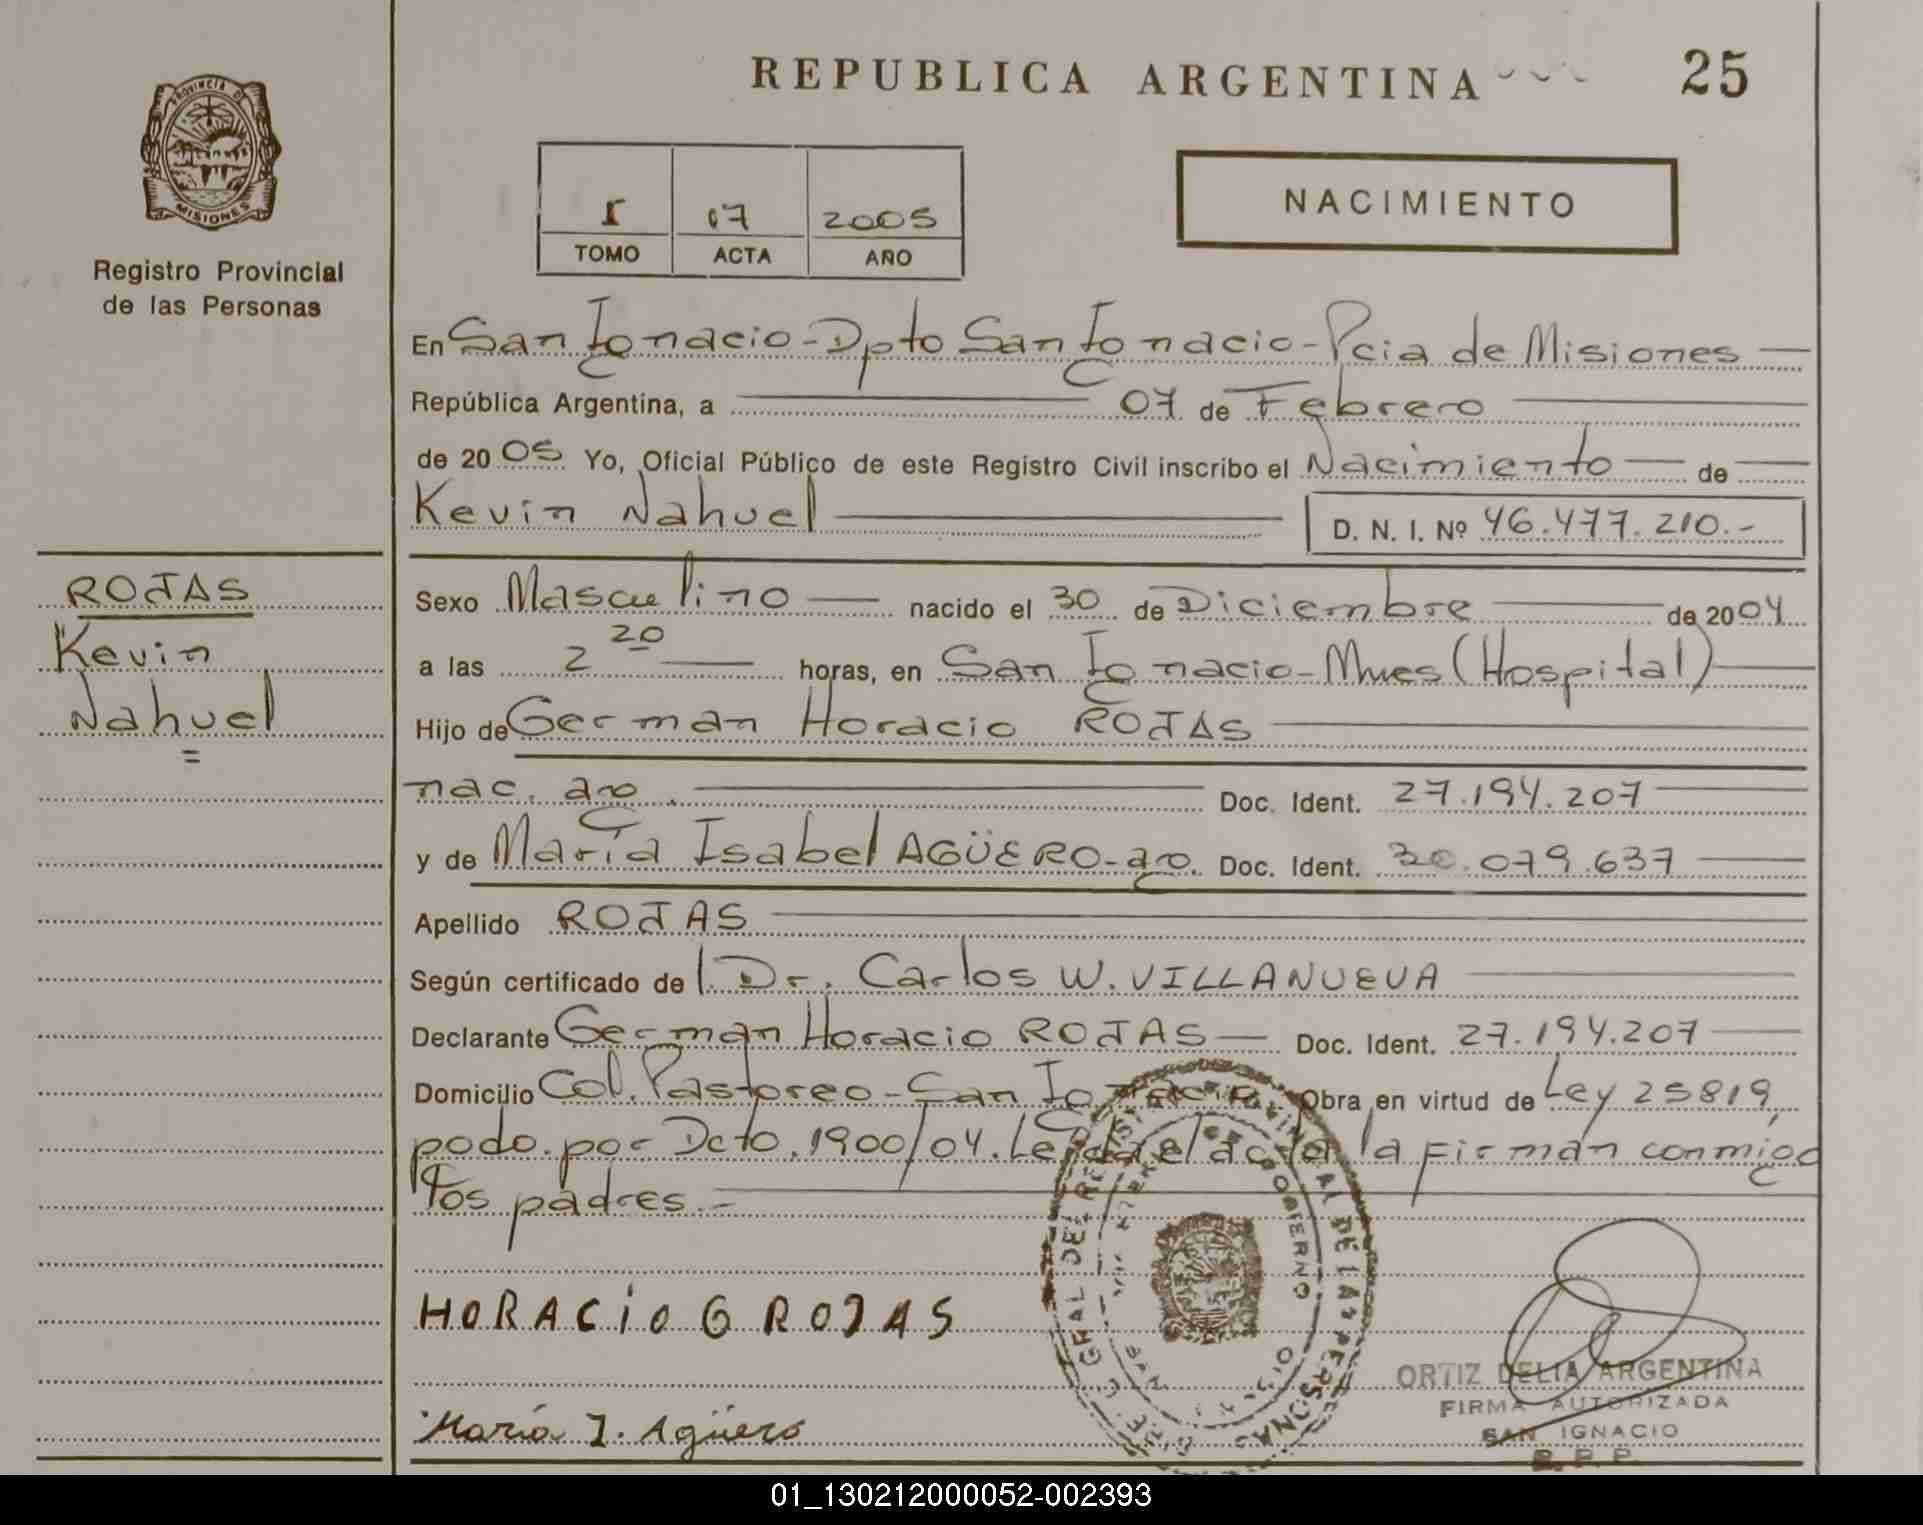 REPUBLICA ARGENTINA
25
PROVINCIA DE
MISIONES
Registro Provincial
de las Personas
I 07 2005
TOMO ACTA AÑO
NACIMIENTO
En San Ignacio - Dpto San Ignacio - Pcia de Misiones
República Argentina, a 07 de Febrero
de 2005 Yo, Oficial Público de este Registro Civil inscribo el Nacimiento de
Kevin Nahuel D. N. I. Nº 46.477.210.-
ROJAS
Kevin
Nahuel
=
Sexo Masculino nacido el 30 de Diciembre de 2004
a las 2 20 horas, en San Ignacio - Mnes (Hospital)
Hijo de German Horacio ROJAS
nac. arg. Doc. Ident. 27.194.207
y de María Isabel AGÜERO - arg. Doc. Ident. 30.079.637
Apellido ROJAS
Según certificado de l. Dr. Carlos W. VILLANUEVA
Declarante German Horacio ROJAS Doc. Ident. 27.194.207
Domicilio Col. Pastoreo - San Ignacio Obra en virtud de Ley 25819,
pdo. por Dcto. 1900/04. Leída el acta la firman conmigo
los padres.-
HORACIO G ROJAS
María I. Agüero
ORTIZ DELIA ARGENTINA
FIRMA AUTORIZADA
SAN IGNACIO
R. P. P.
01_130212000052-002393